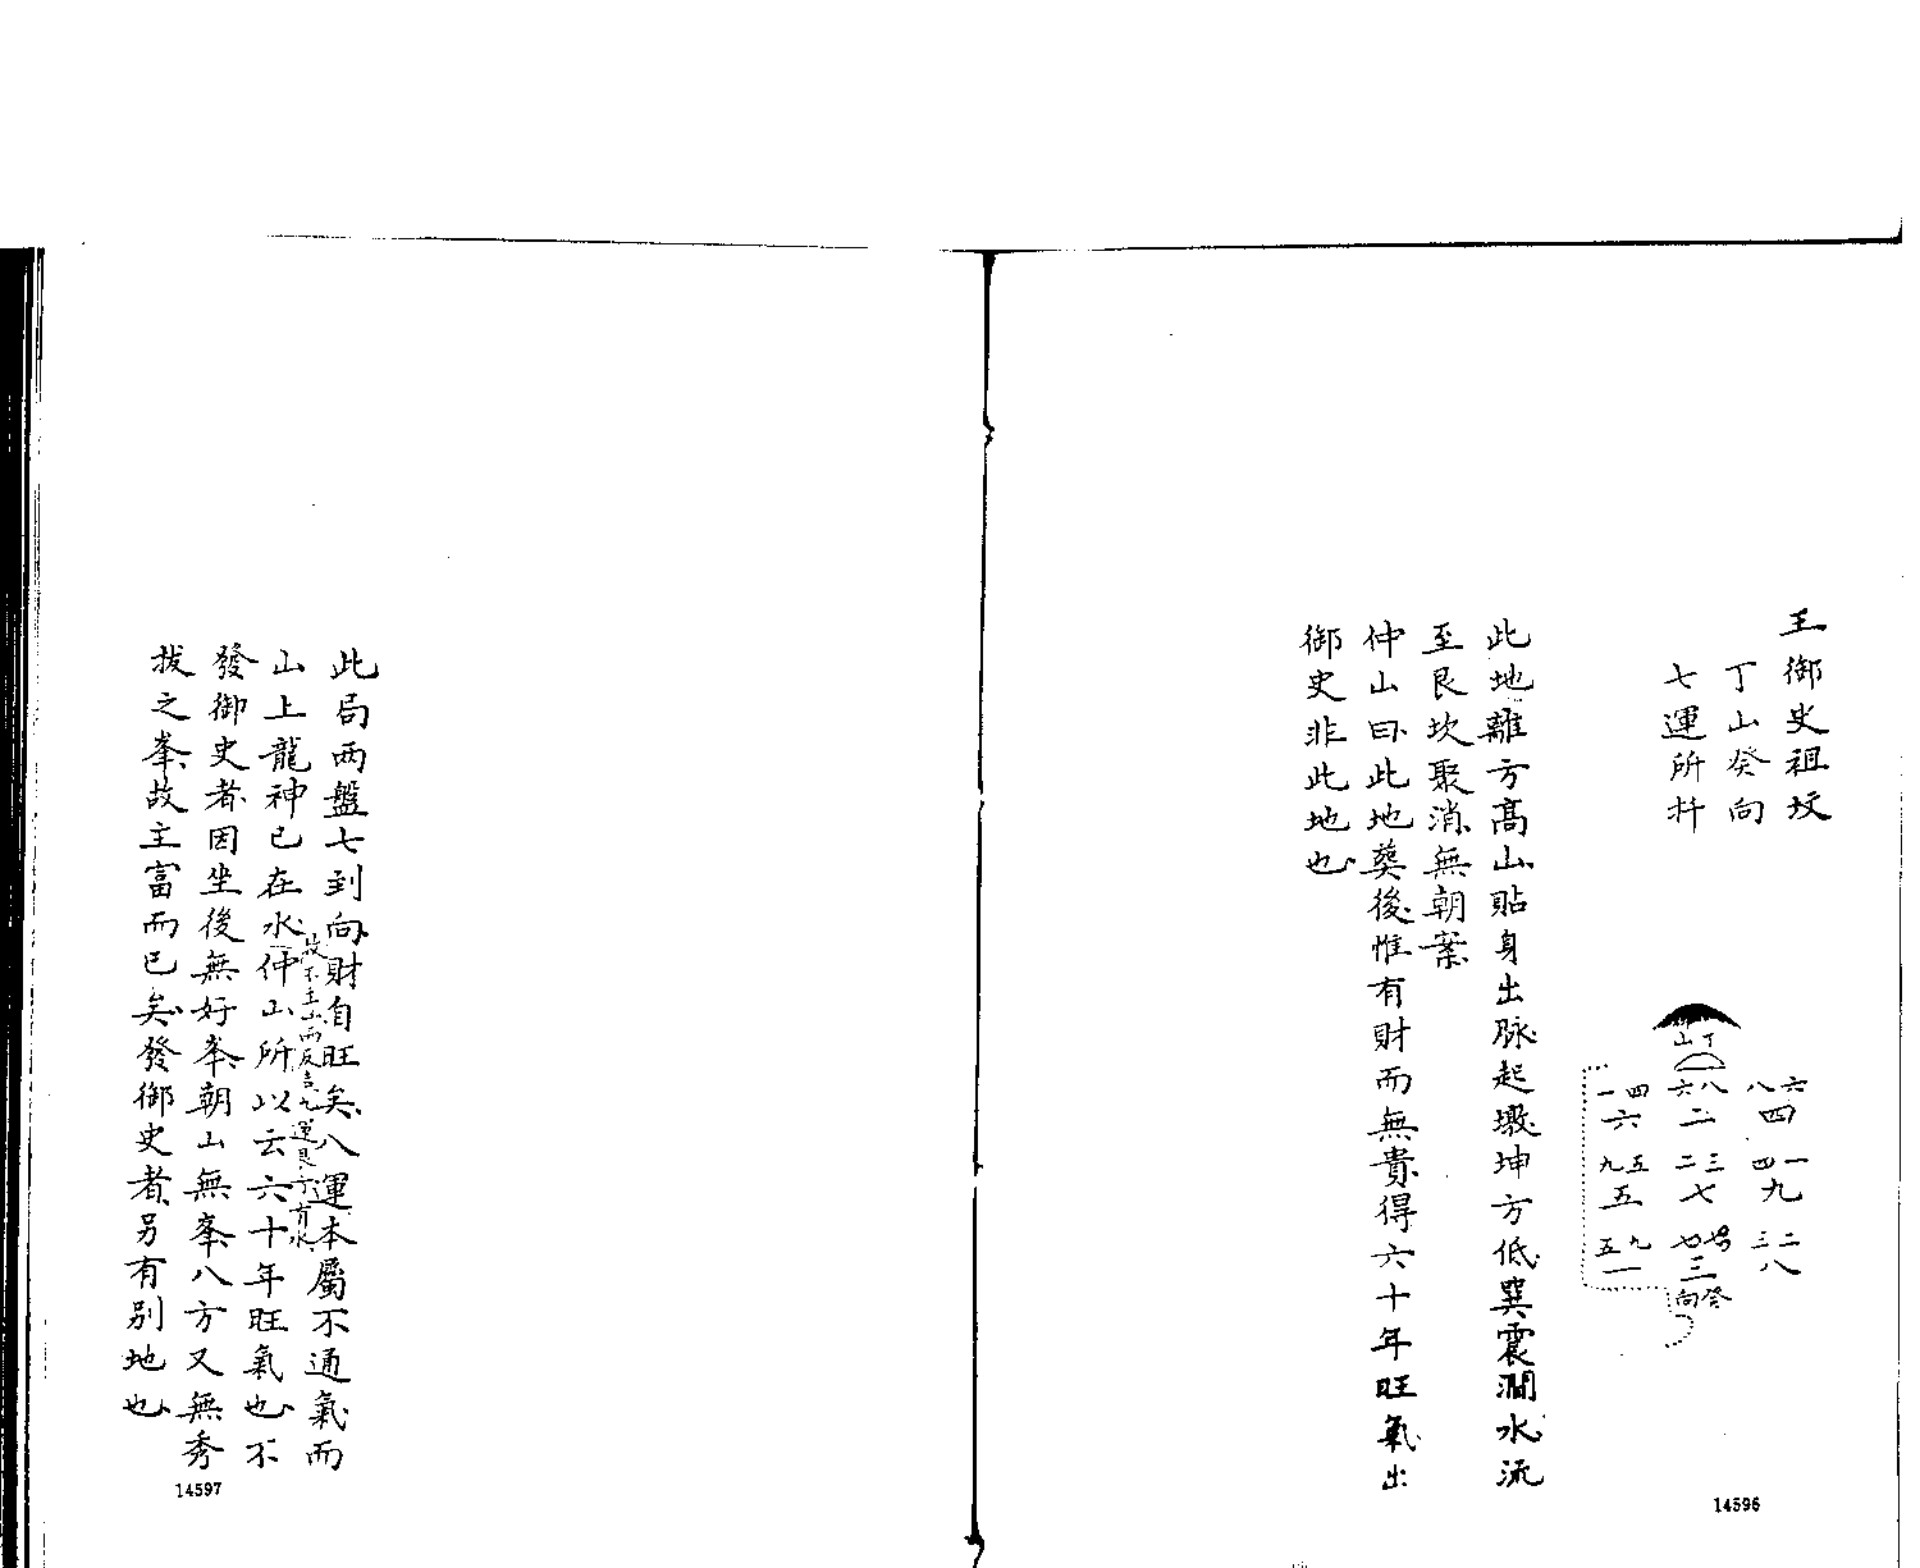 王御史祖坟
丁山癸向
七運所扦
丁山
六八 八六 四一
四 二 六
一四 三二 五九
九 七 五
二三 七 九五
八 三 一
癸向
此地離方高山貼身出脉起墩坤方低巽震澗水流
至艮坎聚消無朝案
仲山曰此地葵後惟有財而無貴得六十年旺氣出
御史非此地也
14596
此局两盤七到向財自旺矣八運本屬不通氣而
山上龍神已在水仲山所以云六十年旺氣也不
故不主山而反吉九運艮方有水
發御史者因坐後無好峯朝山無峯八方又無秀
拔之峯故主富而已矣發御史者另有别地也
14597